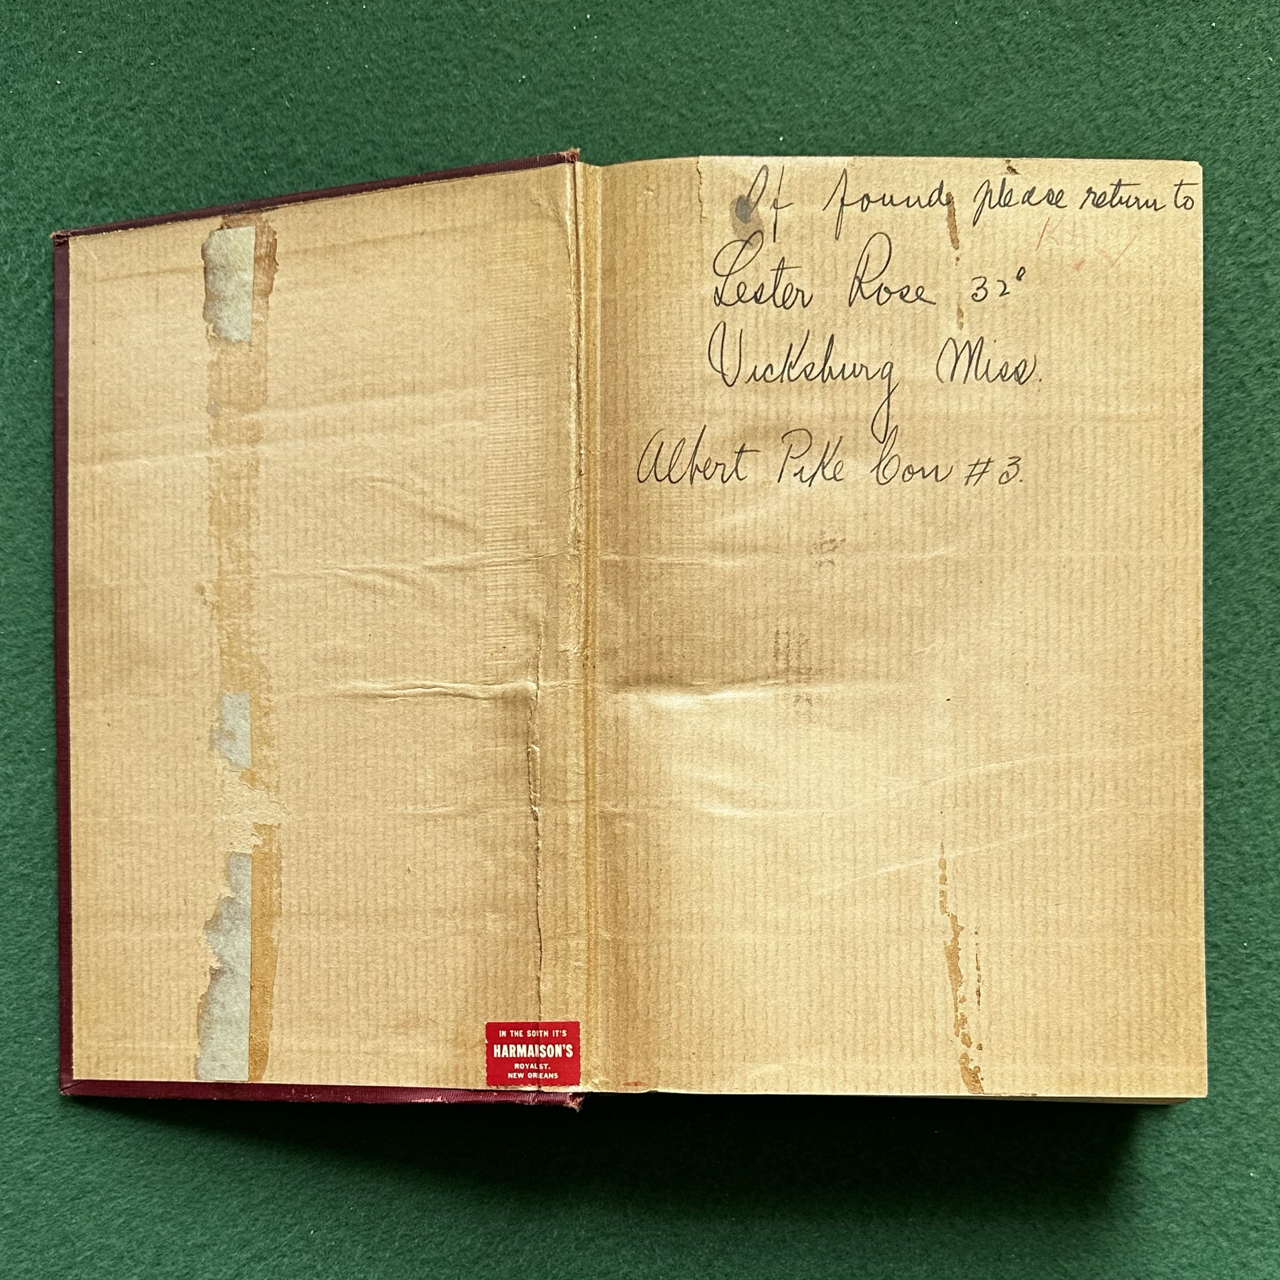 If found please return to
Lester Rose 32°
Vicksburg Miss.
Albert Pike Con #3.
IN THE SOUTH IT'S
HARMANSON'S
ROYAL ST.
NEW ORLEANS